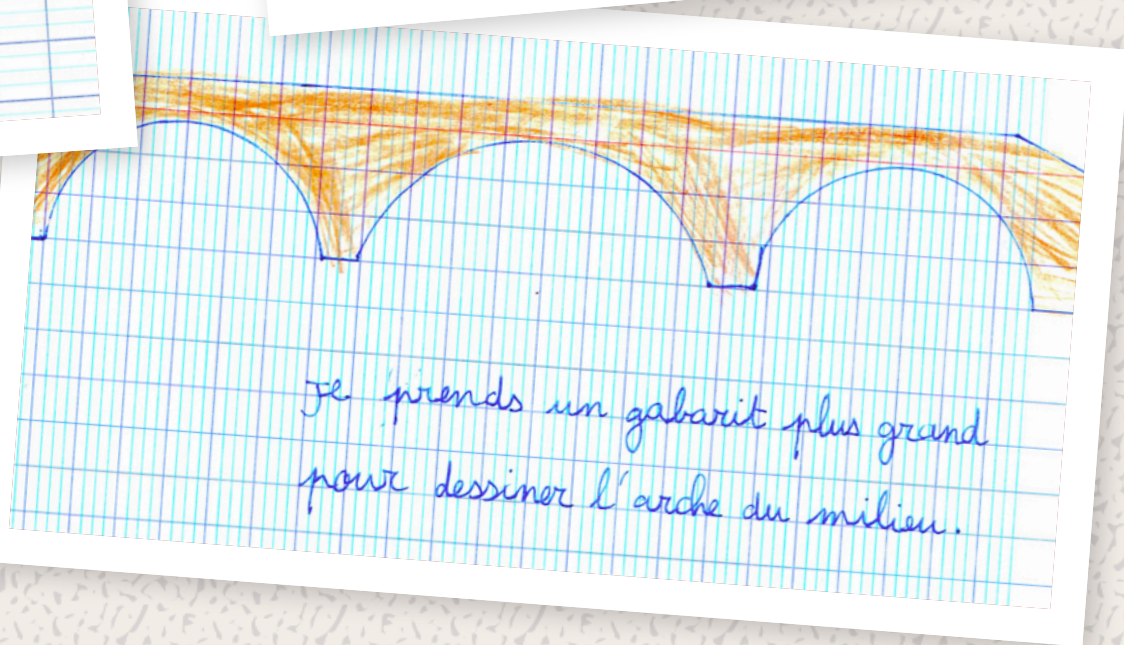 Je prends un gabarit plus grand
pour dessiner l'arche du milieu.